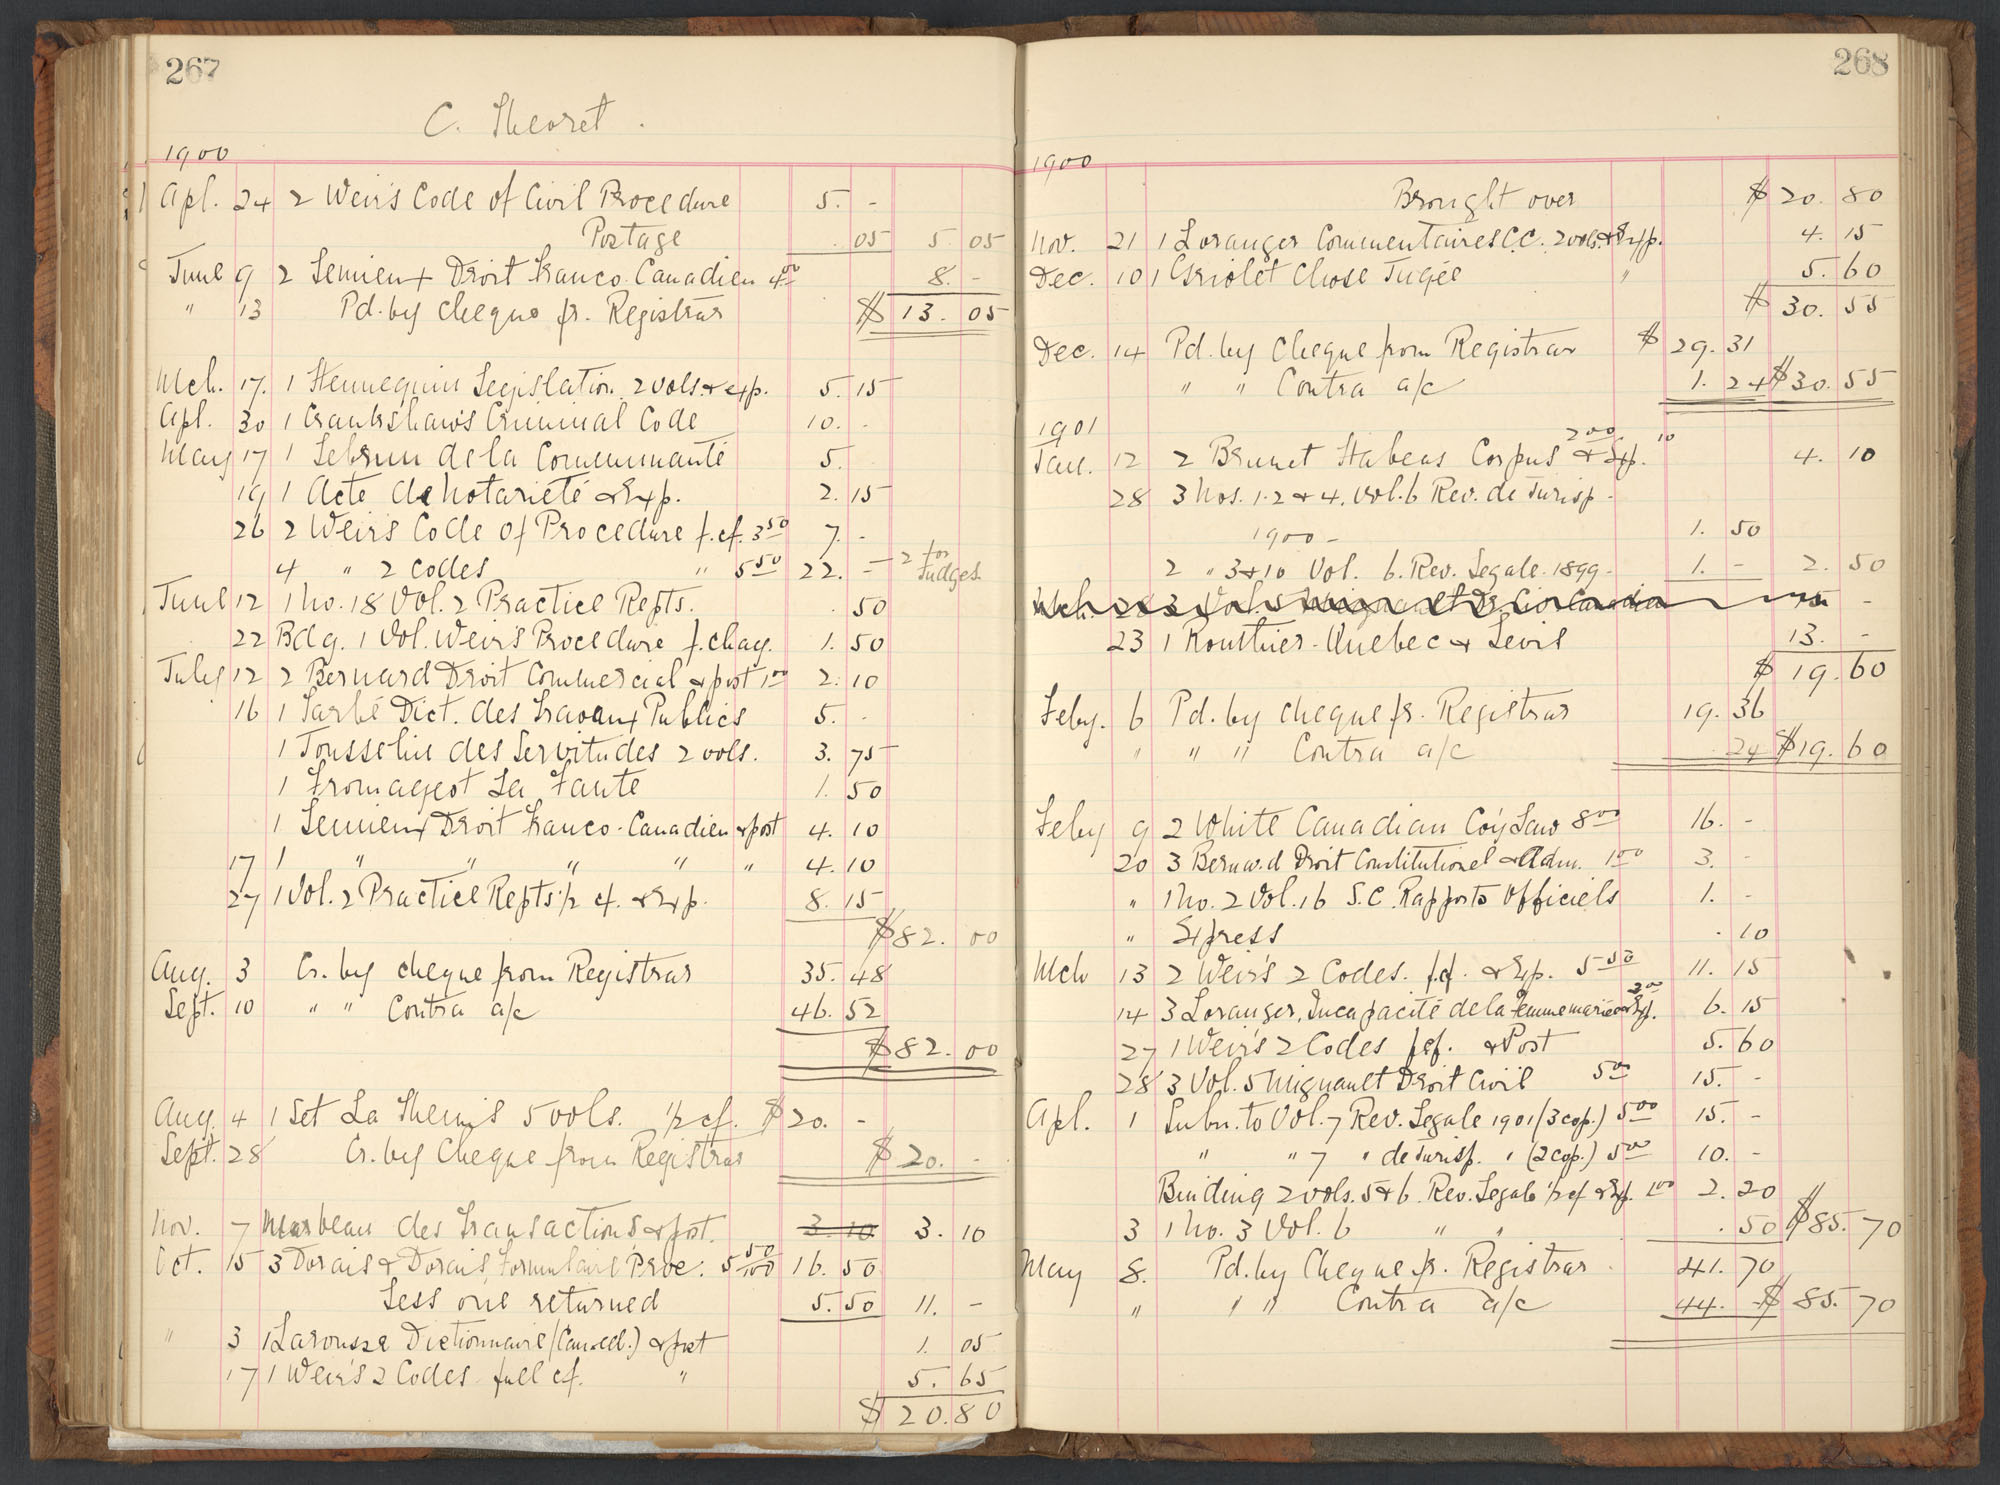 267
C. Theoret.
1900
Apl. 24 2 Weir's Code of Civil Procedure 5. -
Postage .05 5.05
June 9 2 Lemieux Droit Franco-Canadien 4.00 8. -
" 13 Pd. by cheque fr. Registrar $13.05
Mch. 17. 1 Hennequin Legislation 2 vols. & exp. 5.15
Apl. 30 1 Crankshaw's Criminal Code 10. -
May 17 1 Lebrun de la Communauté 5.
19 1 Acte de Notarieté & Exp. 2.15
26 2 Weir's Code of Procedure f. cf. 3.50 7. -
4 " 2 Codes " 5.50 22. - 2 for Judges.
June 12 1 No. 18 Vol. 2 Practice Repts. .50
22 Bdg. 1 Vol. Weir's Procedure f. chag. 1.50
July 12 2 Bernard Droit Commercial & post 1.00 2.10
16 1 Tarbé Dict. des Travaux Publics 5. -
1 Tousselin des Servitudes 2 vols. 3.75
1 Fromageot La Faute 1.50
1 Lemieux Droit Franco-Canadien & post 4.10
17 1 " " " " " 4.10
27 1 Vol. 2 Practice Repts. 1/2 cf. & Exp. 8.15
$82.00
Aug. 3 Cr. by cheque from Registrar 35.48
Sept. 10 " " Contra a/c 46.52
$82.00
Aug. 4 1 Set La Themis 5 vols. 1/2 cf. $20. -
Sept. 28 Cr. by Cheque from Registrar $20. -
Nov. 7 Marbeau des Transactions & post. 3.10 3.10
Oct. 15 3 Dorais & Dorais, Formulaire Proc. 5 50/100 16.50
Less one returned 5.50 11. -
" 3 1 Larousse Dictionnaire (Can. ed.) & post 1.05
17 1 Weir's 2 Codes full cf. " 5.65
$20.80
268
1900
Brought over $20.80
Nov. 21 1 Loranger Commentaires C.C. 2 vols. & Exp. 4.15
Dec. 10 1 Griolet Chose Jugée " 5.60
$30.55
Dec. 14 Pd. by Cheque from Registrar $29.31
" " Contra a/c 1.24 $30.55
1901
Jan. 12 2 Brunet Habeas Corpus 2.00 & Exp. 10 4.10
28 3 Nos. 1. 2 & 4. Vol. 6 Rev. de Jurisp -
1900 - 1.50
2 " 3 & 10 Vol. 6. Rev. Legale. 1899. 1. - 2.50
Mch. 28 3 Vol. 5 Mignault Dr. Civ. Canadien 15 -
23 1 Routhier - Quebec & Levis 13. -
$19.60
Feby. 6 Pd. by cheque fr. Registrar 19.36
" " " Contra a/c .24 $19.60
Feby 9 2 White Canadian Co'y Law 8.00 16. -
20 3 Bernard Droit Constitutionel & Adm. 1.00 3. -
" 1 No. 2 Vol. 16 S.C. Rapports Officiels 1. -
" Express .10
Mch 13 2 Weir's 2 Codes. f. cf. & Exp. 5.50 11.15
14 3 Loranger, Incapacité de la Femme mariée & Exp. 2.00 6.15
27 1 Weir's 2 Codes f. cf. & Post 5.60
28 3 Vol. 5 Mignault Droit Civil 5.00 15. -
Apl. 1 Subn. to Vol. 7 Rev. Legale 1901 (3 cop.) 5.00 15. -
" " 7 " de Jurisp. " (2 cop.) 5.00 10. -
Binding 2 vols. 5 & 6. Rev. Legale 1/2 cf & Exp. 1.00 2.20
3 1 No. 3 Vol. 6 " " .50 $85.70
May 8. Pd. by Cheque fr. Registrar 41.70
" " " Contra a/c 44. - $85.70